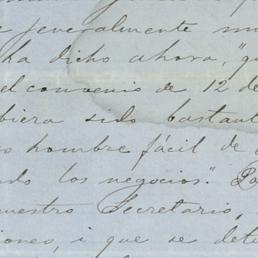 jeneralmente mu
ha dicho ahora, "qu
el convenio de 12 de
biera sido bastant
hombre fácil de
ndo los negocios". Po
uestro Secretario,
iones, i que se dete